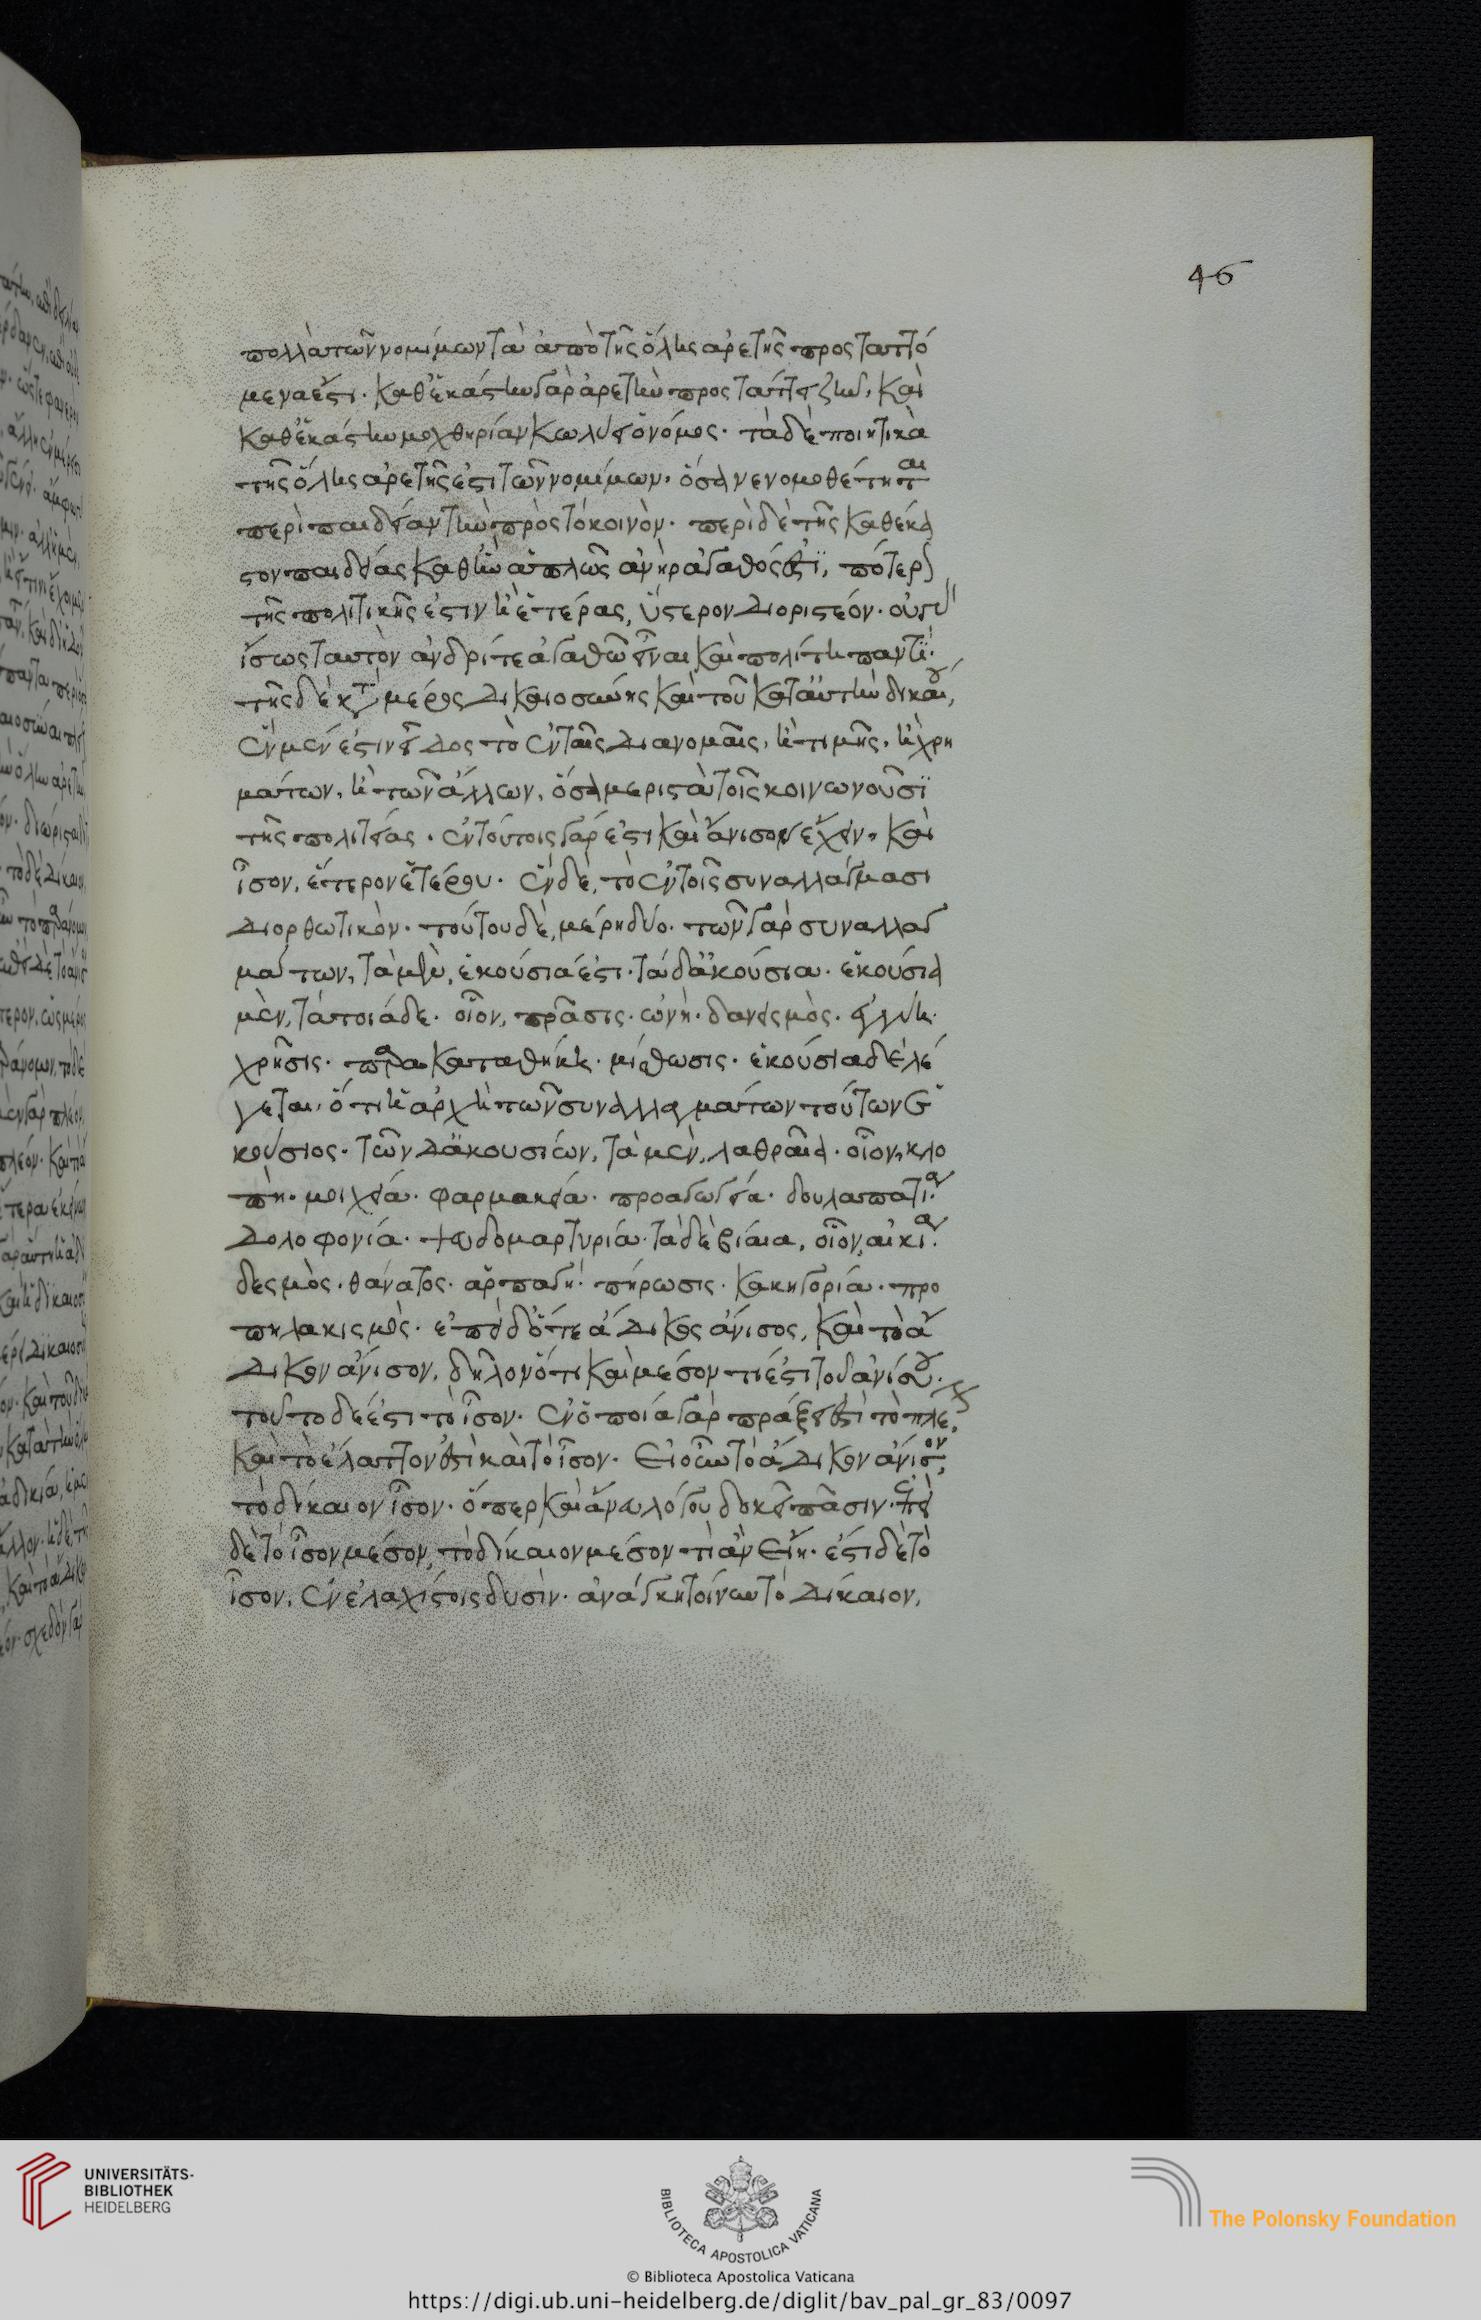 46
πολλὰ τῶν νομίμων τὰ ἀπὸ τῆς ὅλης ἀρετῆς προσταττό
μενα ἐστι. καθ' ἑκάστην γὰρ ἀρετὴν προστάττει ζῆν, καὶ
καθ' ἑκάστην μοχθηρίαν κωλύει ὁ νόμος. τὰ δὲ ποιητικὰ
τῆς ὅλης ἀρετῆς ἐστι τῶν νομίμων, ὅσα νενομοθέτηται
περὶ παιδείαν τὴν πρὸς τὸ κοινὸν. περὶ δὲ τῆς καθέκα
στον παιδείας καθ' ἣν ἁπλῶς ἀνὴρ ἀγαθός ἐστι, πότερον
τῆς πολιτικῆς ἐστιν ἢ ἑτέρας, ὕστερον διοριστέον. οὐ γὰρ
ἴσως ταυτὸν ἀνδρί τε ἀγαθῶ εἶναι καὶ πολίτη παντί.
τῆς δὲ κατὰ μέρος δικαιοσύνης καὶ τοῦ κατ' αὐτὴν δικαίου,
ἓν μέν ἐστιν εἶδος τὸ ἐν ταῖς διανομαῖς, ἢ τιμῆς, ἢ χρη
μάτων, ἢ τῶν ἄλλων, ὅσα μεριστὰ τοῖς κοινωνοῦσι
τῆς πολιτείας. ἐν τούτοις γάρ ἐστι καὶ ἄνισον ἔχειν, καὶ
ἶσον, ἕτερον ἑτέρου. ἓν δὲ, τὸ ἐν τοῖς συναλλάγμασι
διορθωτικὸν. τούτου δὲ, μέρη δύο. τῶν γὰρ συναλλαγ
μάτων, τὰ μὲν, ἑκούσιά ἐστι. τὰ δ' ἀκούσια. ἑκούσια
μὲν, τὰ τοιάδε. οἷον, πρᾶσις. ὠνή. δανεισμὸς. ἐγγύη.
χρῆσις. παρακαταθήκη. μίσθωσις. ἑκούσια δὲ λέ
γεται, ὅτι ἡ ἀρχὴ τῶν συναλλαγμάτων τούτων ἑ
κούσιος. τῶν δ' ἀκουσίων, τὰ μὲν, λαθραῖα. οἷον, κλο
πὴ. μοιχεία. φαρμακεία. προαγωγεία. δουλαπατία.
δολοφονία. ψευδομαρτυρία. τὰ δὲ βίαια, οἷον, αἰκία.
δεσμὸς. θάνατος. ἁρπαγή. πήρωσις. κακηγορία. προ
πηλακισμὸς. ἐπεὶ δ' ὅ τε ἄδικος ἄνισος, καὶ τὸ ἄ
δικον ἄνισον, δῆλον ὅτι καὶ μέσον τι ἐστι τοῦ ἀνίσου.
τοῦτο δέ ἐστι τὸ ἶσον. ἐν ὁποία γὰρ πράξει ἐστὶ τὸ πλέον,
καὶ τὸ ἔλαττον, ἐστὶ καὶ τὸ ἶσον. εἰ οὖν τὸ ἄδικον ἄνισον,
τὸ δίκαιον ἶσον. ὅπερ καὶ ἄνευ λόγου δοκεῖ πᾶσιν. ἐπεὶ
δὲ τὸ ἶσον μέσον, τὸ δίκαιον μέσον τι ἂν εἴη. ἐστι δὲ τὸ
ἶσον, ἐν ἐλαχίστοις δυσὶν. ἀνάγκη τοίνυν τὸ δίκαιον,
UNIVERSITÄTS-
BIBLIOTHEK
HEIDELBERG
BIBLIOTECA APOSTOLICA VATICANA
The Polonsky Foundation
© Biblioteca Apostolica Vaticana
https://digi.ub.uni-heidelberg.de/diglit/bav_pal_gr_83/0097